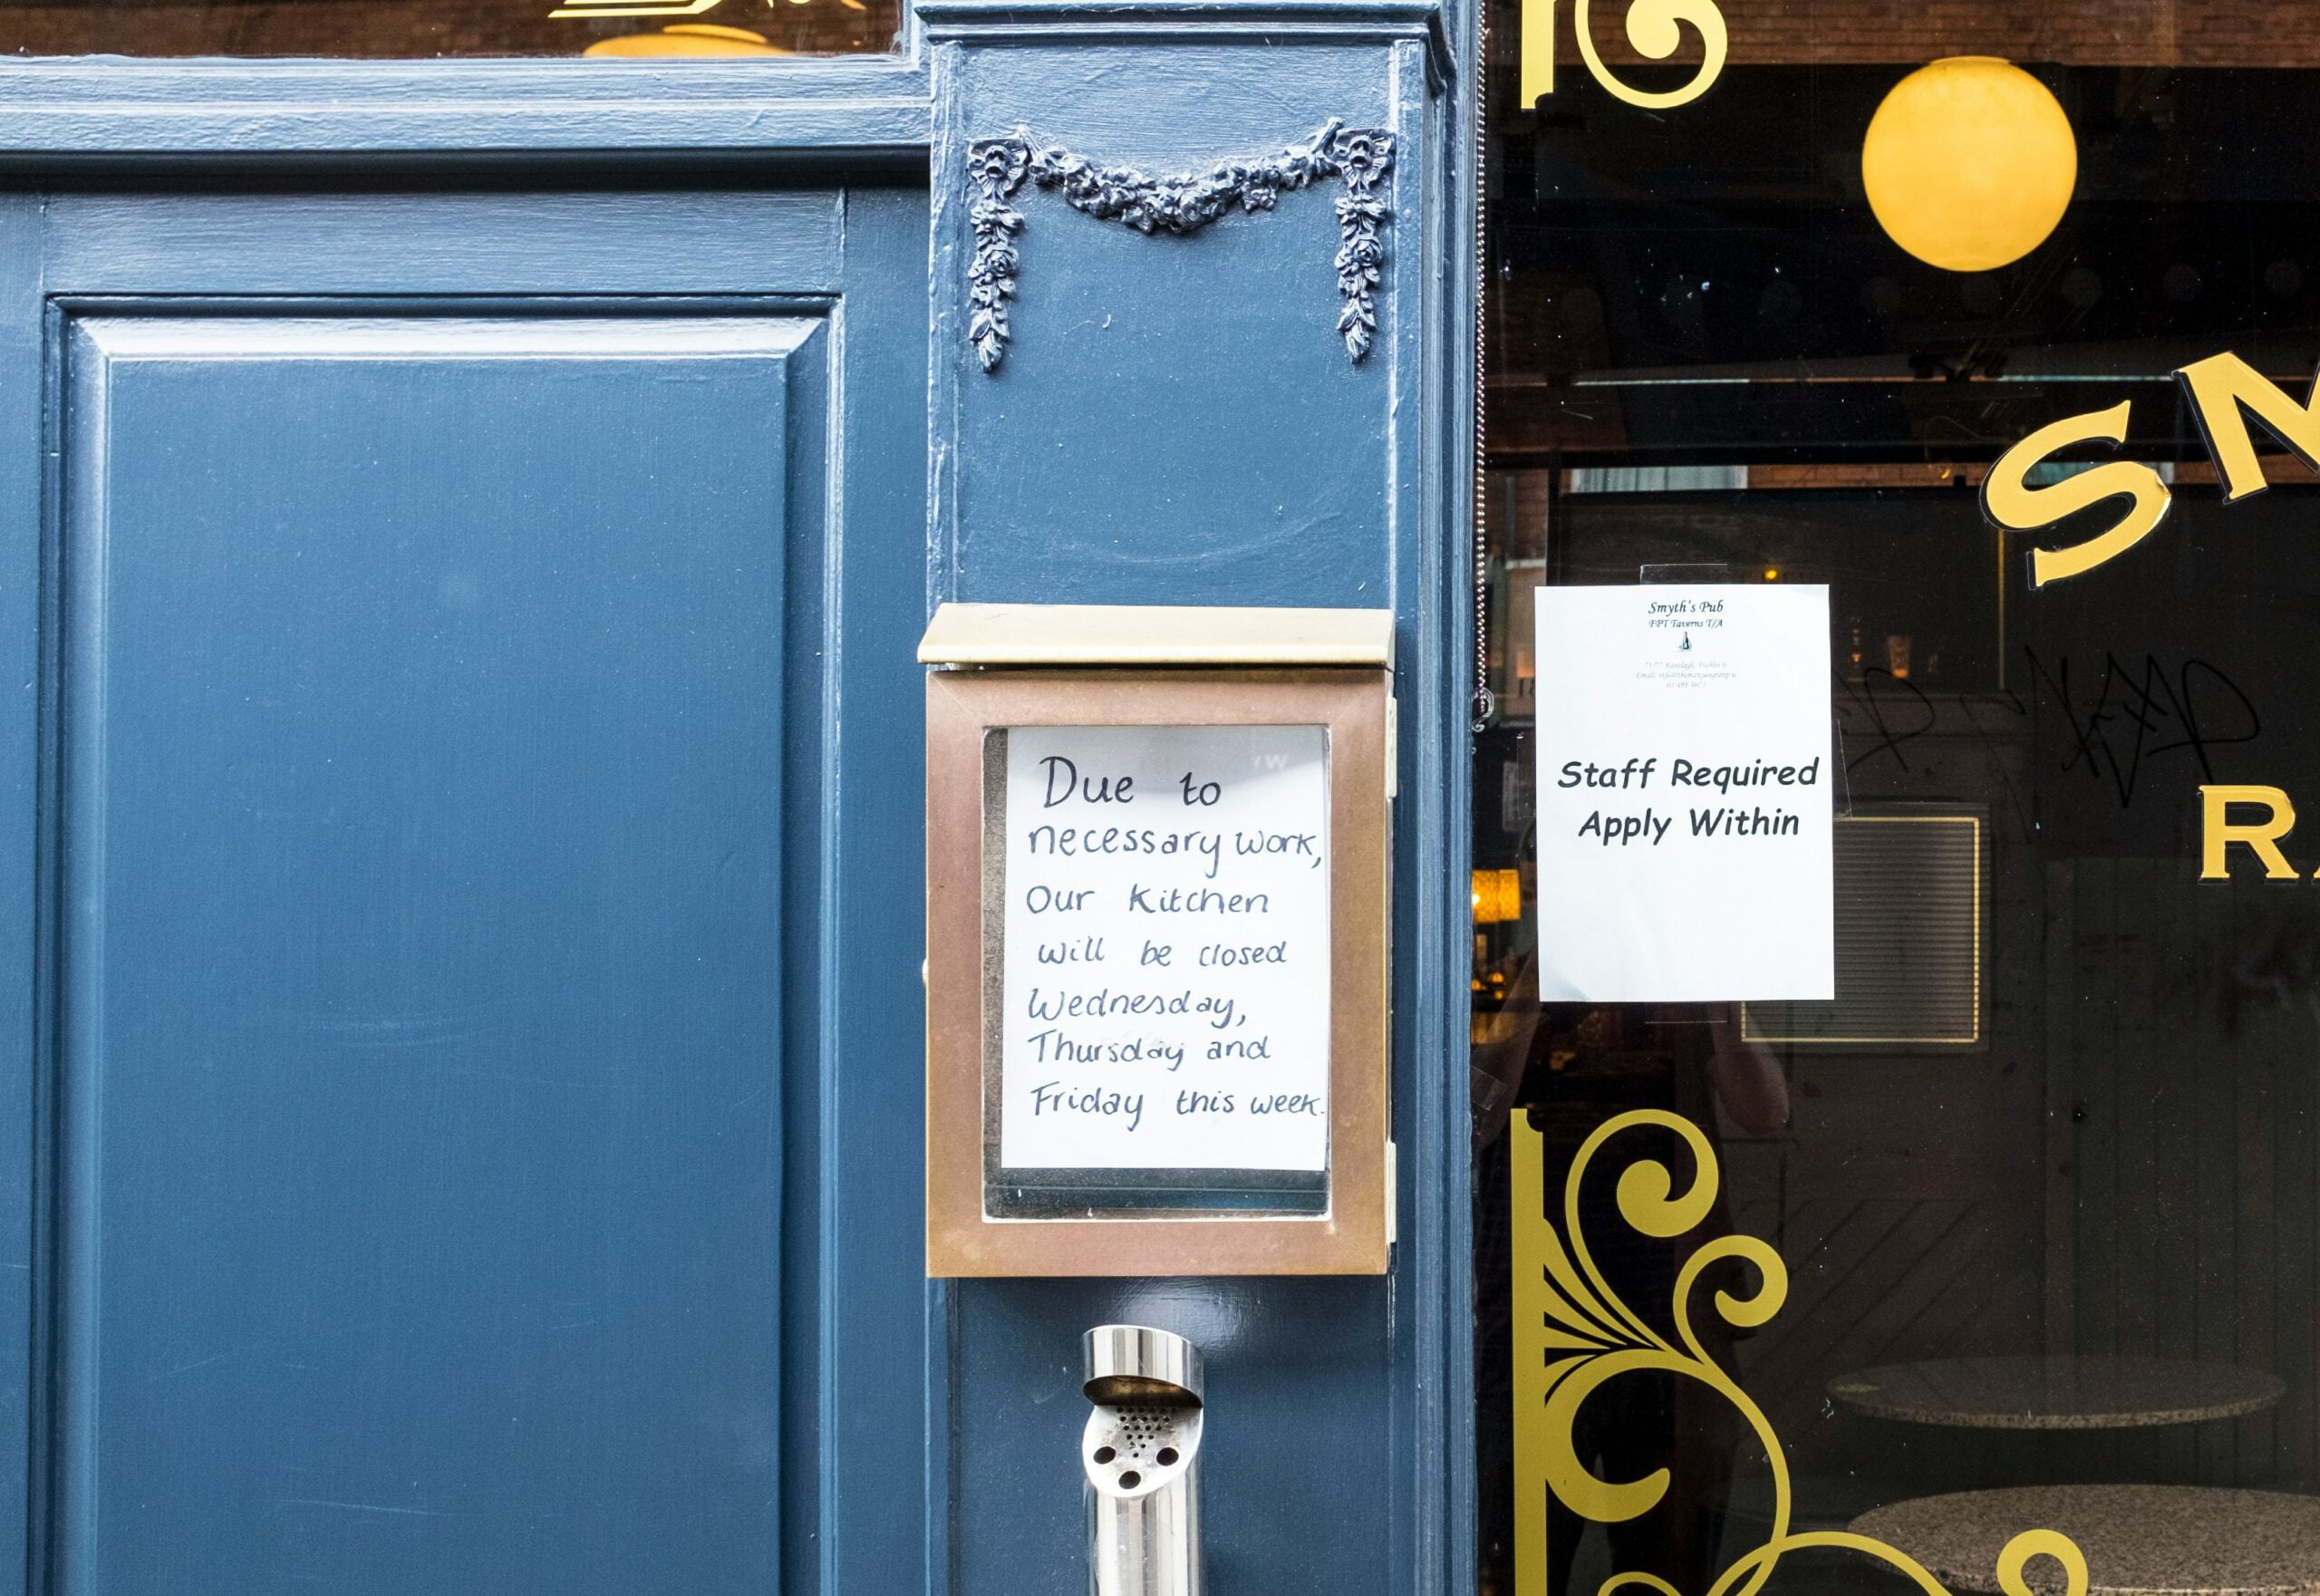 Due to
necessary work,
Our Kitchen
will be closed
Wednesday,
Thursday and
Friday this week.
Smyth's Pub
FPT Taverns T/A
Staff Required
Apply Within
SM
RA